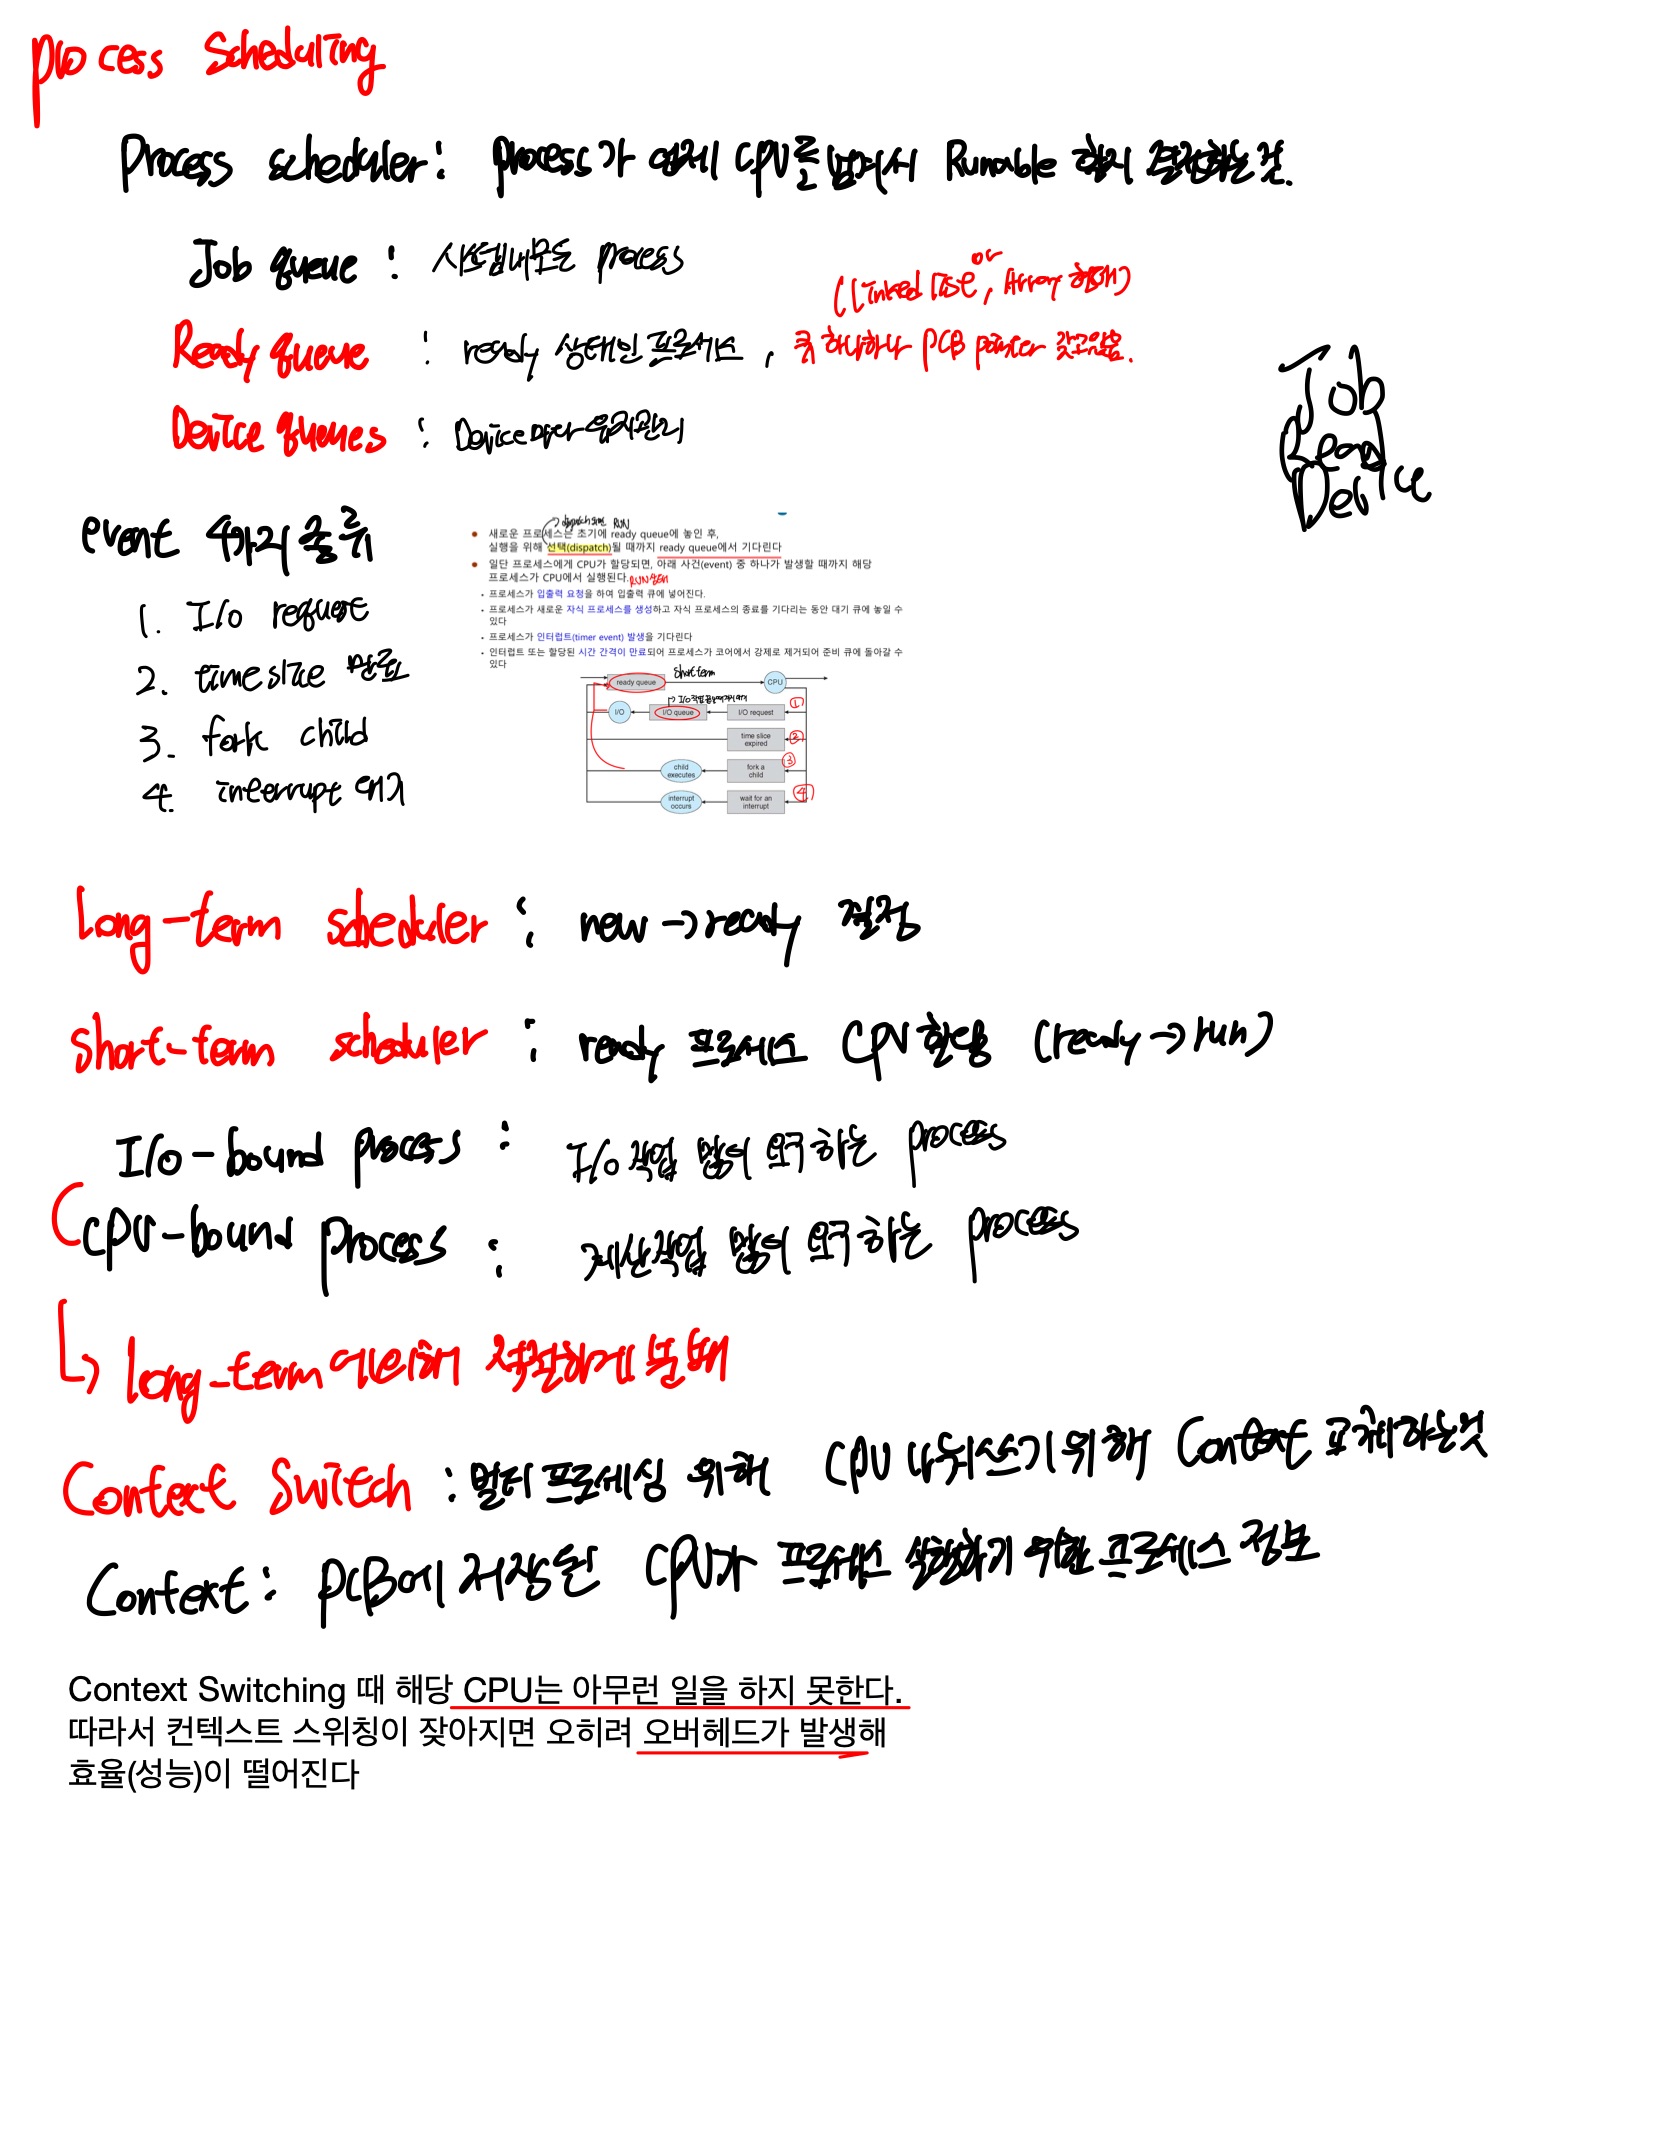 process Scheduling
Process scheduler : process가 언제 CPU를 넘겨서 Runable 할지 결정하는 것.
Job queue : 시스템내 모든 process
(linked list or, Array 형태)
Ready queue : ready 상태인 프로세스, 큐 하나하나 PCB pointer 갖고있음.
Device queues : Device마다 유지관리
Job
Ready
Device
event 4가지 종류
1. I/o request
2. time slice 만료
3. fork child
4. interrupt 대기
dispatch되면 RUN
새로운 프로세스는 초기에 ready queue에 놓인 후,
실행을 위해 선택(dispatch)될 때까지 ready queue에서 기다린다
일단 프로세스에게 CPU가 할당되면, 아래 사건(event) 중 하나가 발생할 때까지 해당
프로세스가 CPU에서 실행된다. RUN상태
프로세스가 입출력 요청을 하여 입출력 큐에 넣어진다.
프로세스가 새로운 자식 프로세스를 생성하고 자식 프로세스의 종료를 기다리는 동안 대기 큐에 놓일 수
있다
프로세스가 인터럽트(timer event) 발생을 기다린다
인터럽트 또는 할당된 시간 간격이 만료되어 프로세스가 코어에서 강제로 제거되어 준비 큐에 돌아갈 수
있다
short term
ready queue
CPU
I/O
I/O queue
I/O request
①
time slice
expired
②
child
executes
fork a
child
③
interrupt
occurs
wait for an
interrupt
④
long-term scheduler : new → ready 결정
short-term scheduler : ready 프로세스 CPU 할당 (ready → run)
I/o-bound process : I/o 작업 많이 요구하는 process
CPU-bound process : 계산작업 많이 요구하는 process
long-term에 의해 적절하게 분배
Context Switch : 멀티 프로세싱 위해 CPU 나눠쓰기 위해 Context 교체하는것
Context : PCB에 저장된 CPU가 프로세스 실행하기 위한 프로세스 정보
Context Switching 때 해당 CPU는 아무런 일을 하지 못한다.
따라서 컨텍스트 스위칭이 잦아지면 오히려 오버헤드가 발생해
효율(성능)이 떨어진다